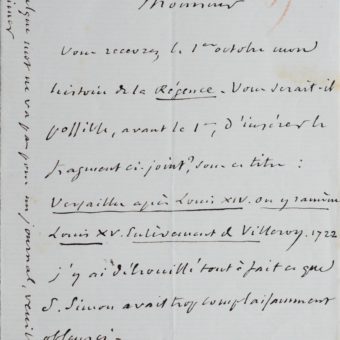 Monsieur
Vous recevrez le 1er octobre mon
histoire de la Régence. Vous serait-il
possible, avant le 1er, d'insérer le
fragment ci-joint, sous ce titre :
Versailles après Louis XIV. on y ramène
Louis XV. Enlèvement de Villeroy. 1722
j'y ai débrouillé tout à fait ce que
S. Simon avait trop complaisamment
obscurci.
quelque mot ne va pas pour un journal, veuil